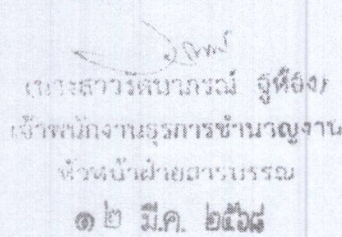 (นางสาวรัตนาภรณ์ ชูทอง)
เจ้าพนักงานธุรการชำนาญงาน
หัวหน้าฝ่ายสารบรรณ
๑๒ มี.ค. ๒๕๖๘